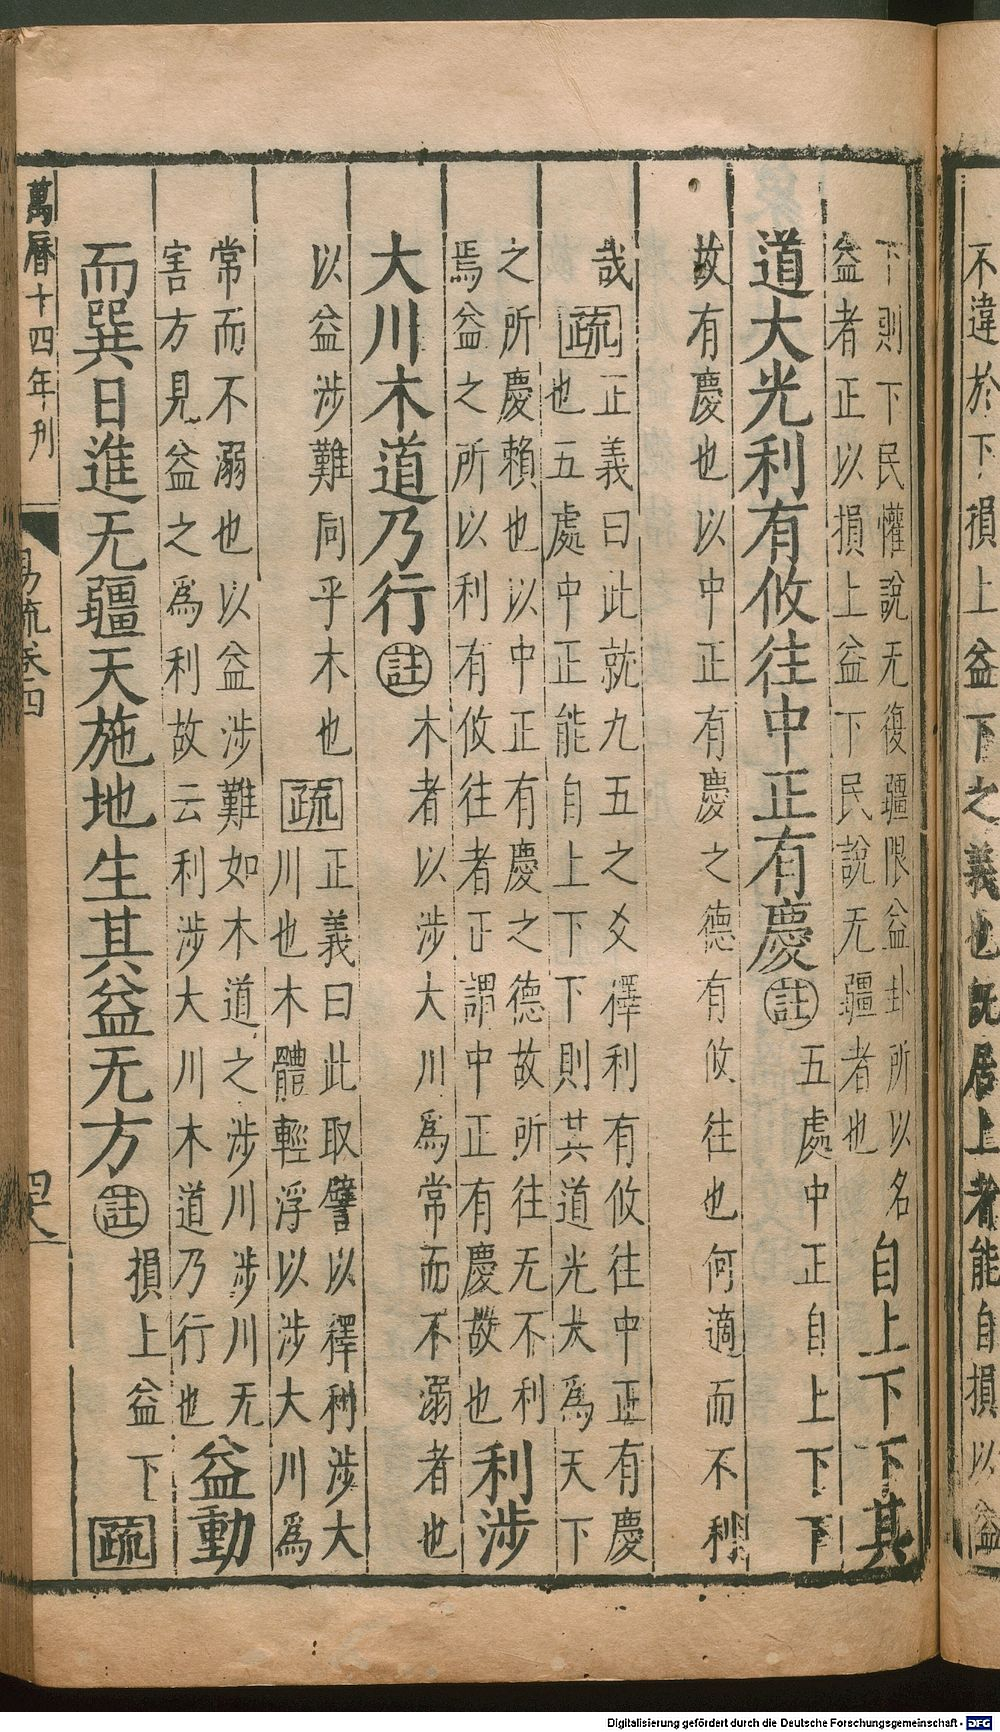 不違於下損上益下之義也既居上者能自損以益
下則下民懽說无復疆限益卦所以名
益者正以損上益下民說无疆者也
自上下下其
道大光利有攸往中正有慶註
五處中正自上下下
故有慶也以中正有慶之德有攸往也何適而不利
哉疏
正義曰此就九五之爻釋利有攸往中正有慶
也五處中正能自上下下則其道光大為天下
之所慶賴也以中正有慶之德故所往无不利
焉益之所以利有攸往者正謂中正有慶故也
利涉
大川木道乃行註
木者以涉大川為常而不溺者也
以益涉難同乎木也疏
正義曰此取譬以釋利涉大
川也木體輕浮以涉大川為
常而不溺也以益涉難如木道之涉川涉川无
害方見益之為利故云利涉大川木道乃行也
益動
而巽日進无疆天施地生其益无方註
損上益下疏
萬曆十四年刊
易疏卷四
四八
Digitalisierung gefördert durch die Deutsche Forschungsgemeinschaft - DFG